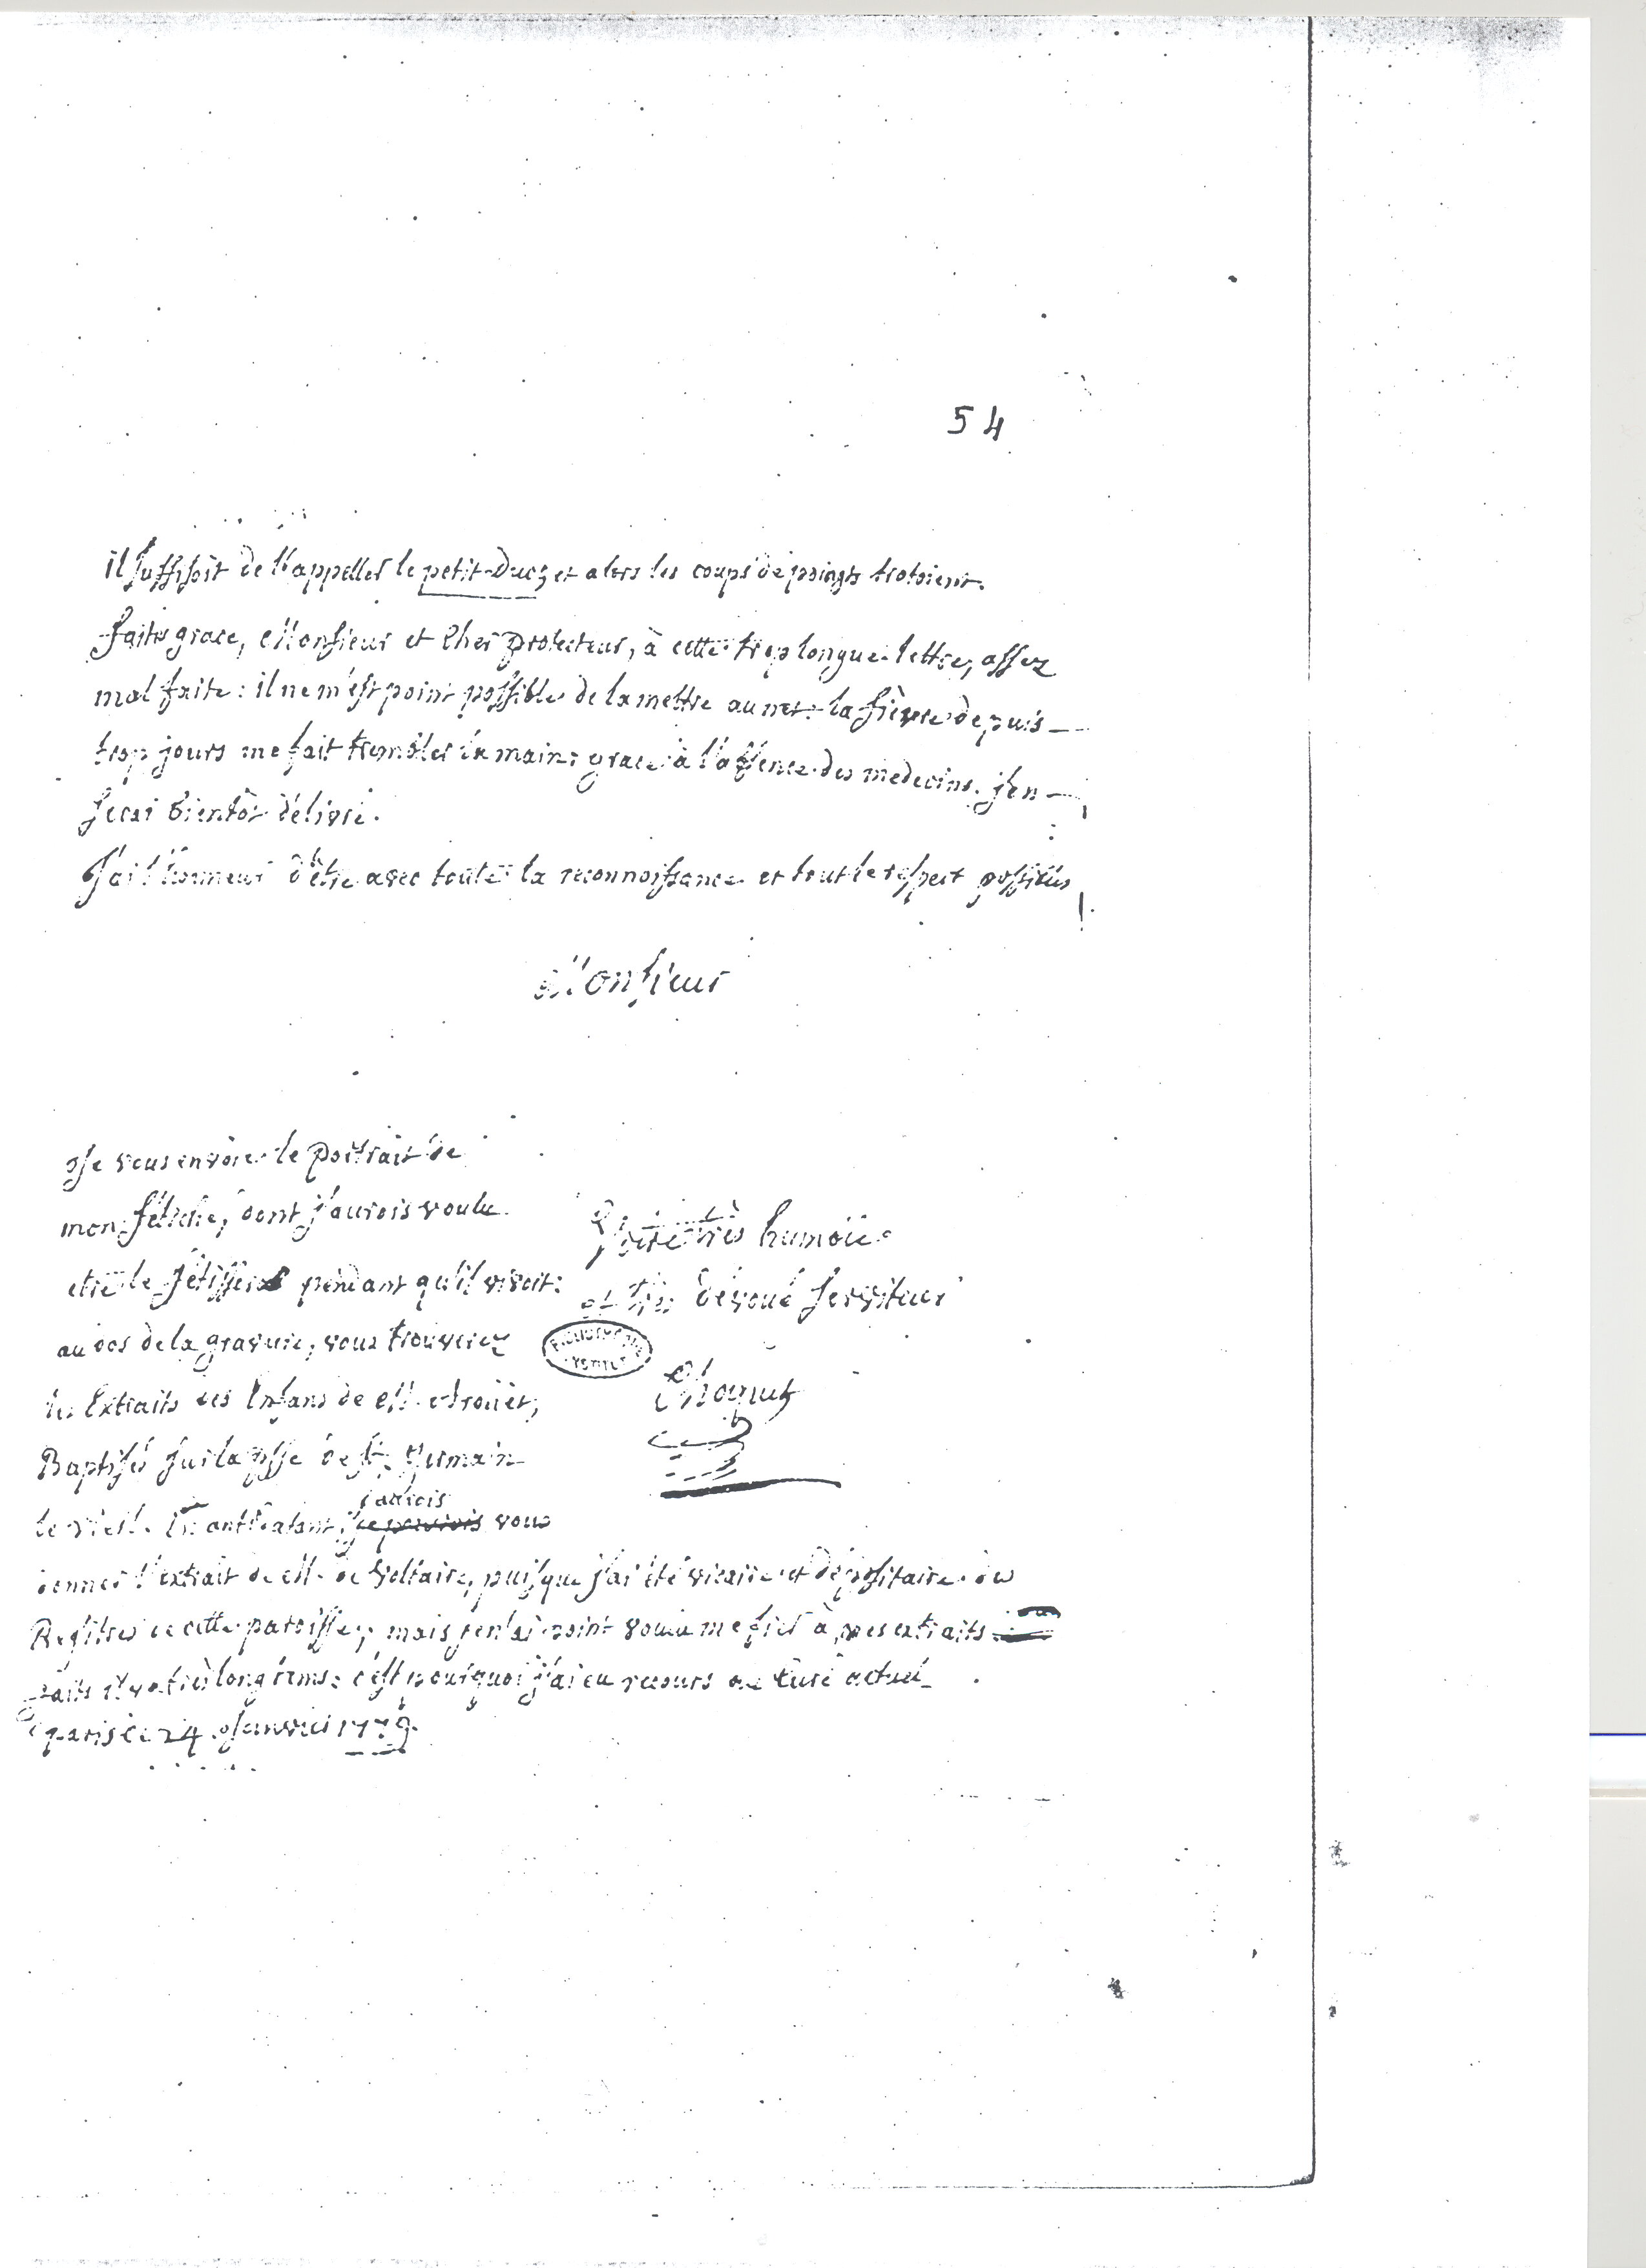 54
il suffisoit de l'appeller le petit-Duc; et alors les coups de poings trotoient.
faites grace, Monsieur et Cher protecteur, à cette trop longue lettre, assez
mal faite: il ne m'est point possible de la mettre au net. la fièvre depuis
trop jours me fait trembler la main: grace à l'absence des medecins. j'en
serai bientôt délivré.
J'ai l'honneur d'être avec toute la reconnoissance et tout le respect possibles
Monsieur
Je vous envoie le portrait de
mon fétiche, dont j'aurois voulu
etre le fétissero pendant qu'il vivoit:
au dos de la gravure, vous trouverez
les Extraits des Enfans de M. Arouët,
Baptisés sur la psse de St. Germain
le vieil. j'aurois vous
donner l'extrait de M. de Voltaire, puisque j'ai été vicaire et dépositaire des
Registres de cette paroisse; mais je n'ai point voulu me fier à mes extraits
faits il y a très longtems: c'est pourquoi j'ai eu recours au Curé actuel
paris ce 24 Janvier 1779.
Votre très humble
et très dévoué serviteur
BIBLIOTHEQUE
INSTITUT